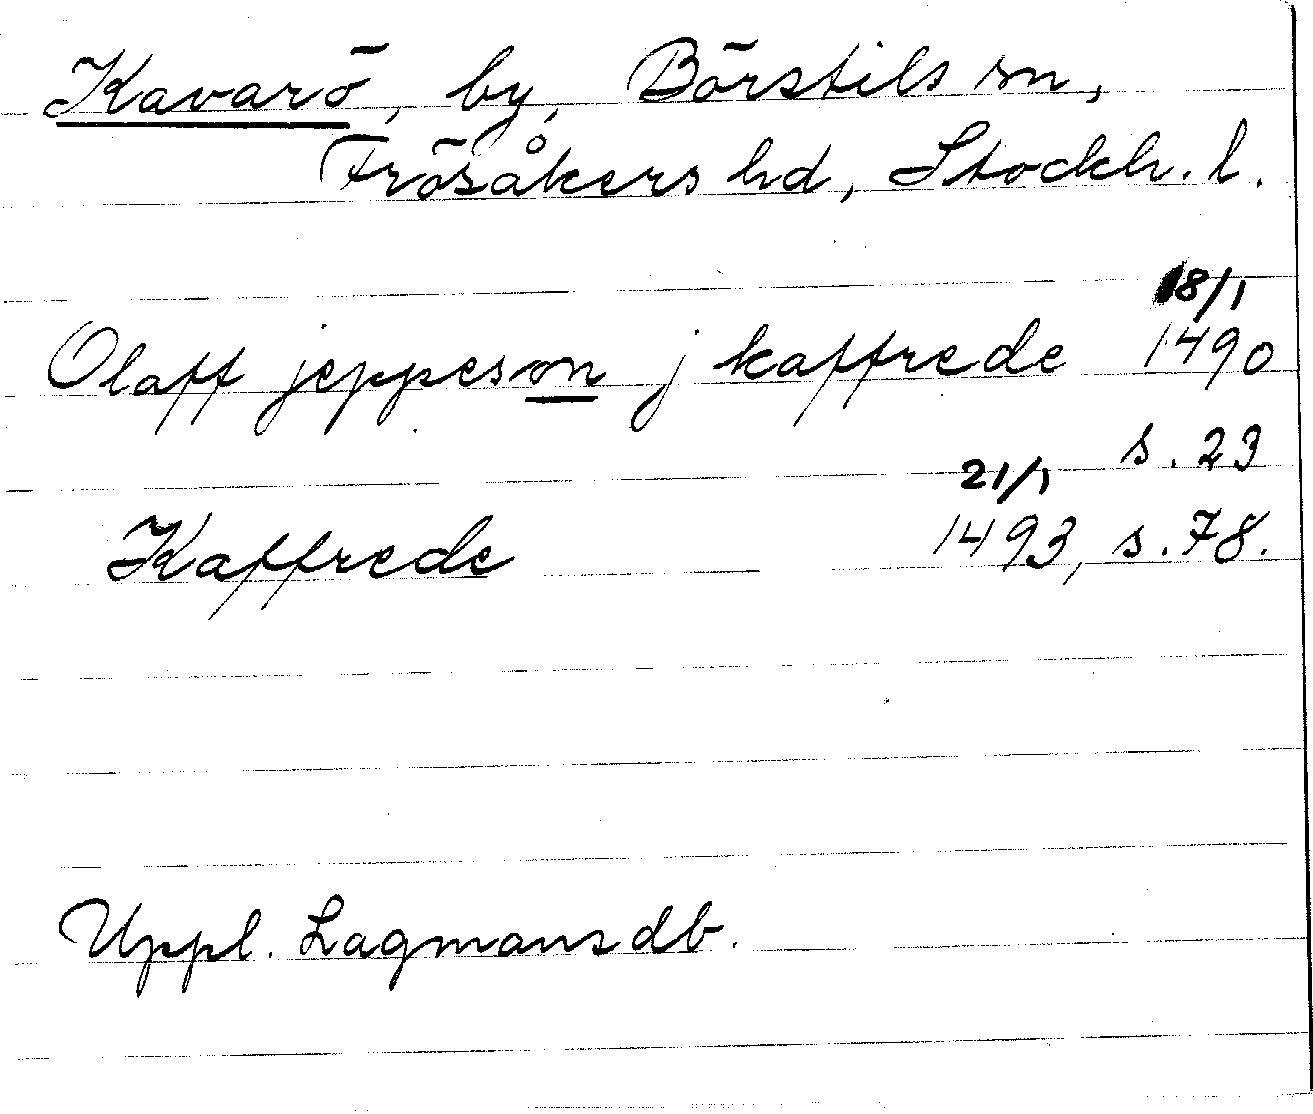 Kavarö, by, Börstils sn,
Frösåkers hd, Stockh. l.
18/1
Olaff jeppeson j kaffrede 1490
s. 23
21/1
Kaffrede 1493, s. 78.
Uppl. Lagmansdb.